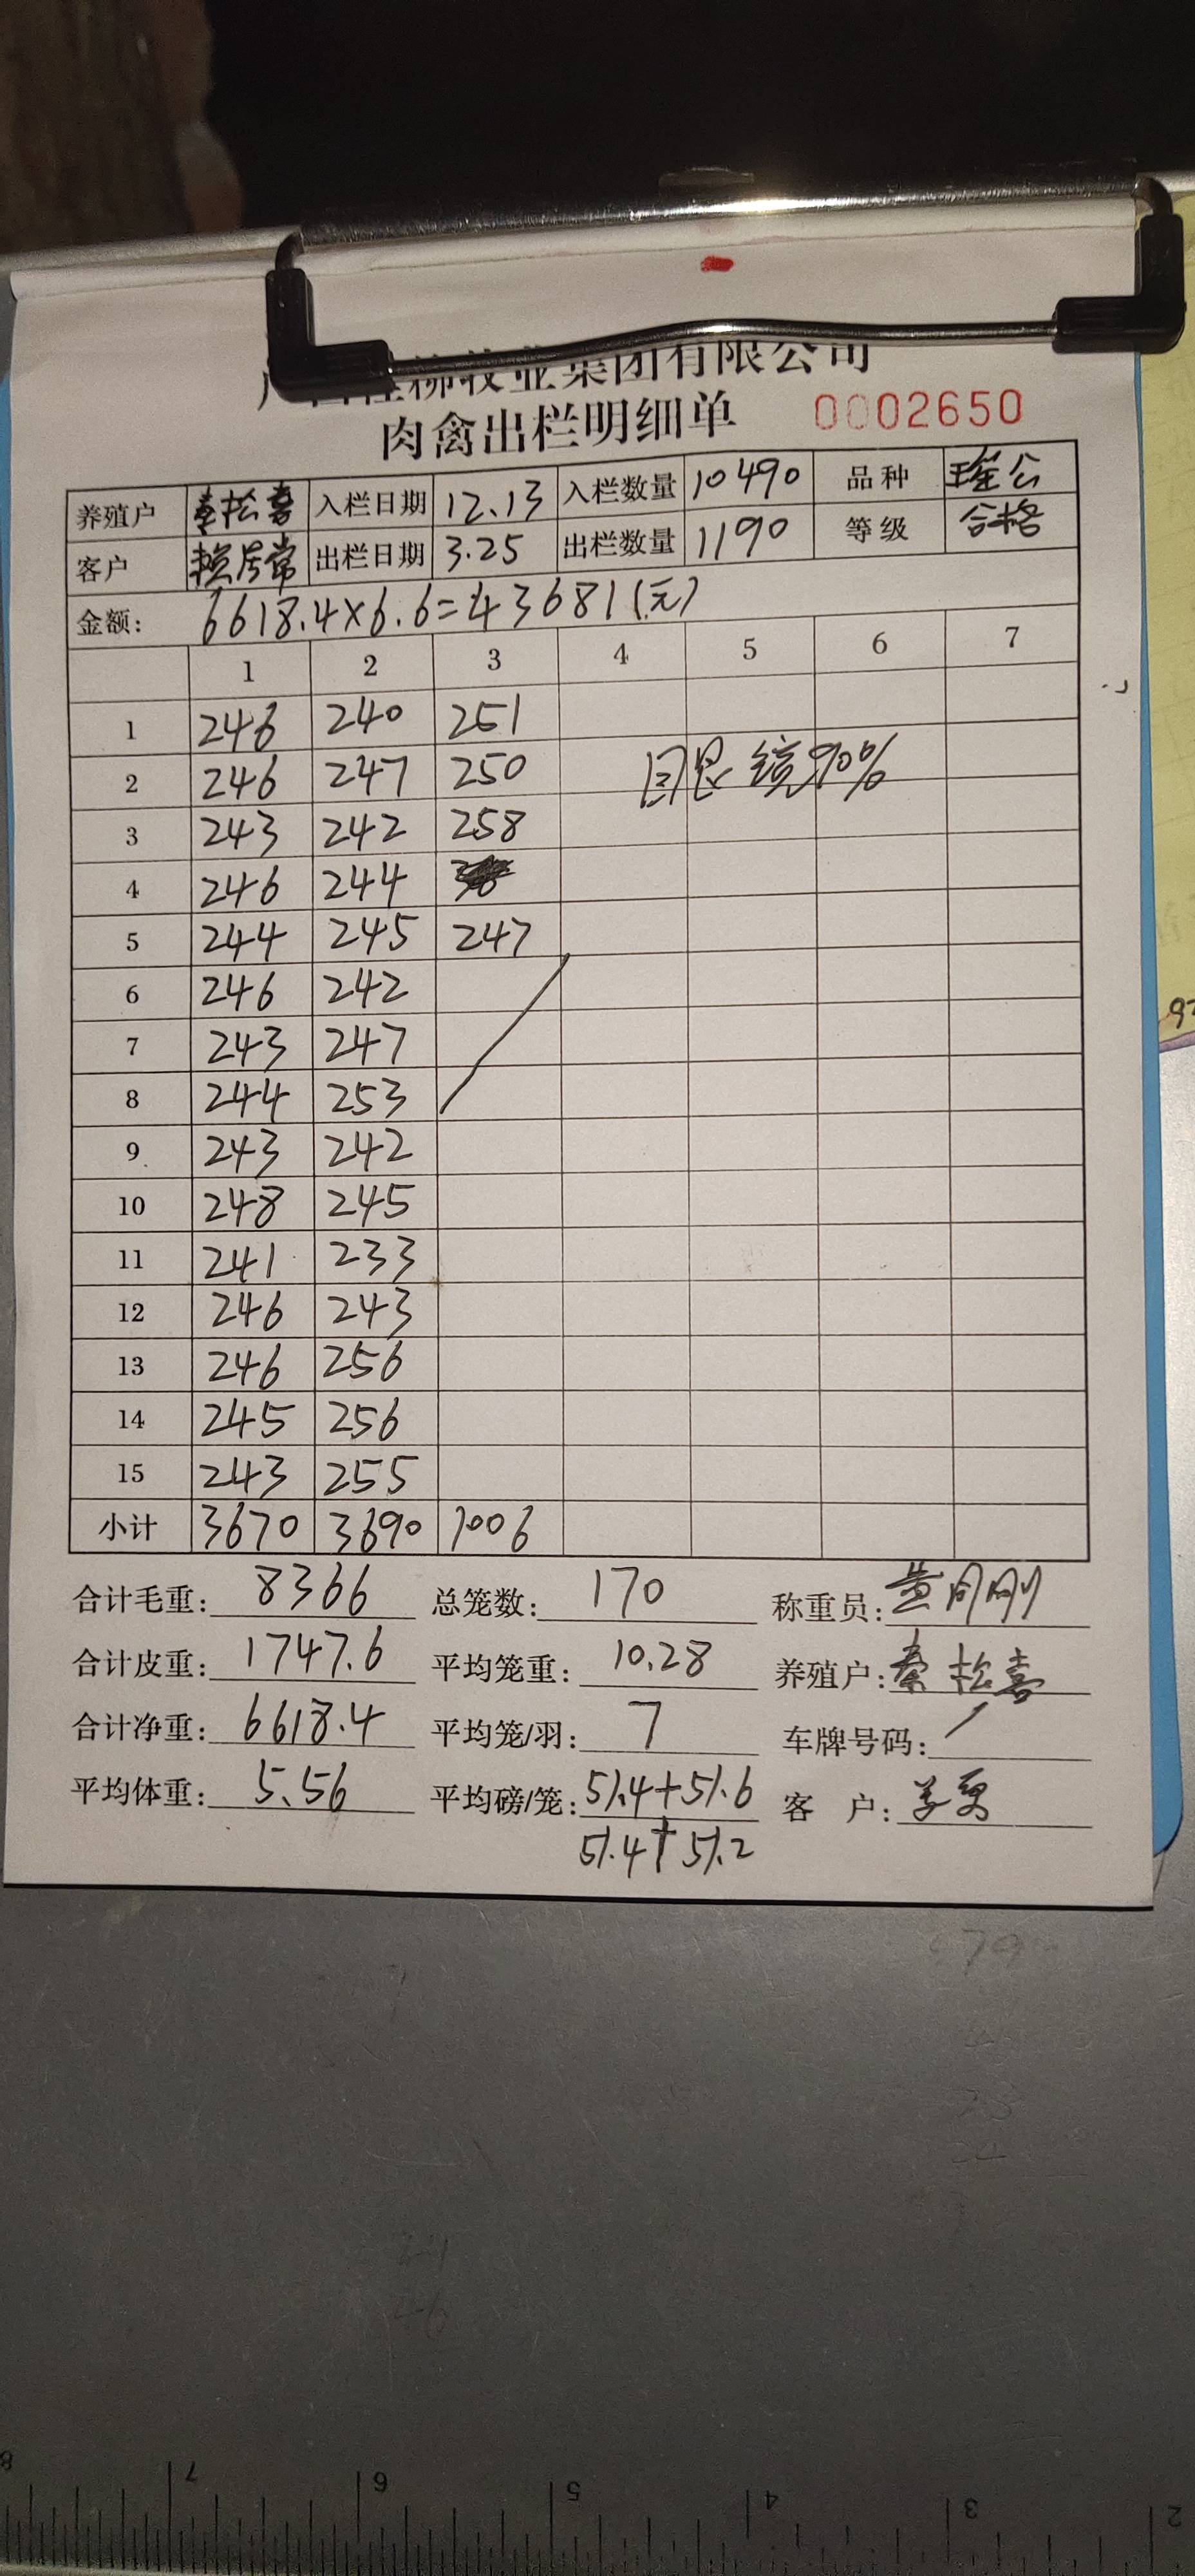 柳牧业集团有限公司
肉禽出栏明细单 0002650
养殖户 秦松喜 入栏日期 12.13 入栏数量 10490 品种 瑶公
客户 赖居常 出栏日期 3.25 出栏数量 1190 等级 合格
金额: 6618.4×6.6=43681(元)
1 2 3 4 5 6 7
1 246 240 251
2 246 247 250 90%
3 243 242 258
4 246 244
5 244 245 247
6 246 242
7 243 247
8 244 253
9 243 242
10 248 245
11 241 233
12 246 243
13 246 256
14 245 256
15 243 255
小计 3670 3690 1006
合计毛重: 8366 总笼数: 170 称重员: 黄
合计皮重: 1747.6 平均笼重: 10.28 养殖户: 秦松喜
合计净重: 6618.4 平均笼/羽: 7 车牌号码: /
平均体重: 5.56 平均磅/笼: 51.4+51.6 客 户:
+
51.4 51.2
8 7 6 5 4 3 2